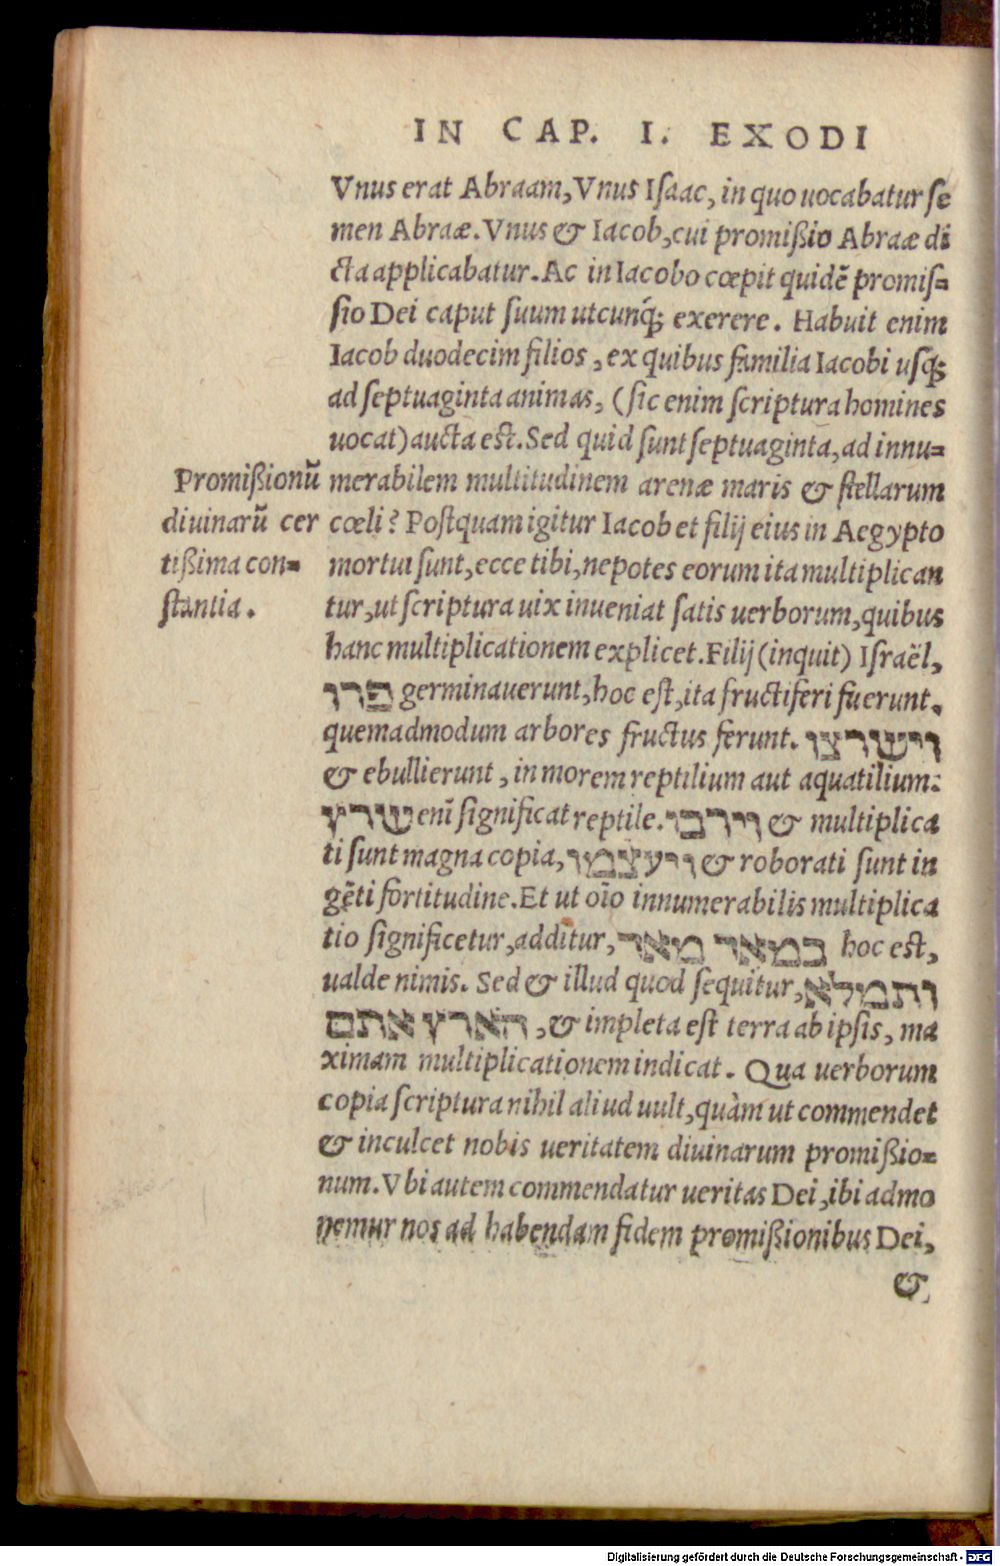 IN CAP. I. EXODI
Vnus erat Abraam, Vnus Isaac, in quo uocabatur se
men Abraæ. Vnus & Iacob, cui promißio Abraæ di
cta applicabatur. Ac in Iacobo cœpit quidẽ promis-
sio Dei caput suum utcunq́; exerere. Habuit enim
Iacob duodecim filios, ex quibus familia Iacobi usq́;
ad septuaginta animas, (sic enim scriptura homines
uocat) aucta est. Sed quid sunt septuaginta, ad innu-
merabilem multitudinem arenæ maris & stellarum
cœli? Postquam igitur Iacob et filij eius in Aegypto
mortui sunt, ecce tibi, nepotes eorum ita multiplican
tur, ut scriptura uix inueniat satis uerborum, quibus
hanc multiplicationem explicet. Filij (inquit) Israël,
פרו germinauerunt, hoc est, ita fructiferi fuerunt,
quemadmodum arbores fructus ferunt. וישרצו
& ebullierunt, in morem reptilium aut aquatilium:
שרץ enĩ significat reptile. וירבו & multiplica
ti sunt magna copia, ויעצמו & roborati sunt in
gẽti fortitudine. Et ut oĩo innumerabilis multiplica
tio significetur, additur, במאד מאד hoc est,
ualde nimis. Sed & illud quod sequitur, ותמלא
הארץ אתם, & impleta est terra ab ipsis, ma
ximam multiplicationem indicat. Qua uerborum
copia scriptura nihil aliud uult, quàm ut commendet
& inculcet nobis ueritatem diuinarum promißio-
num. Vbi autem commendatur ueritas Dei, ibi admo
nemur nos ad habendam fidem promißionibus Dei,
&
Promißionũ
diuinarũ cer
tißima con-
stantia.
Digitalisierung gefördert durch die Deutsche Forschungsgemeinschaft - DFG